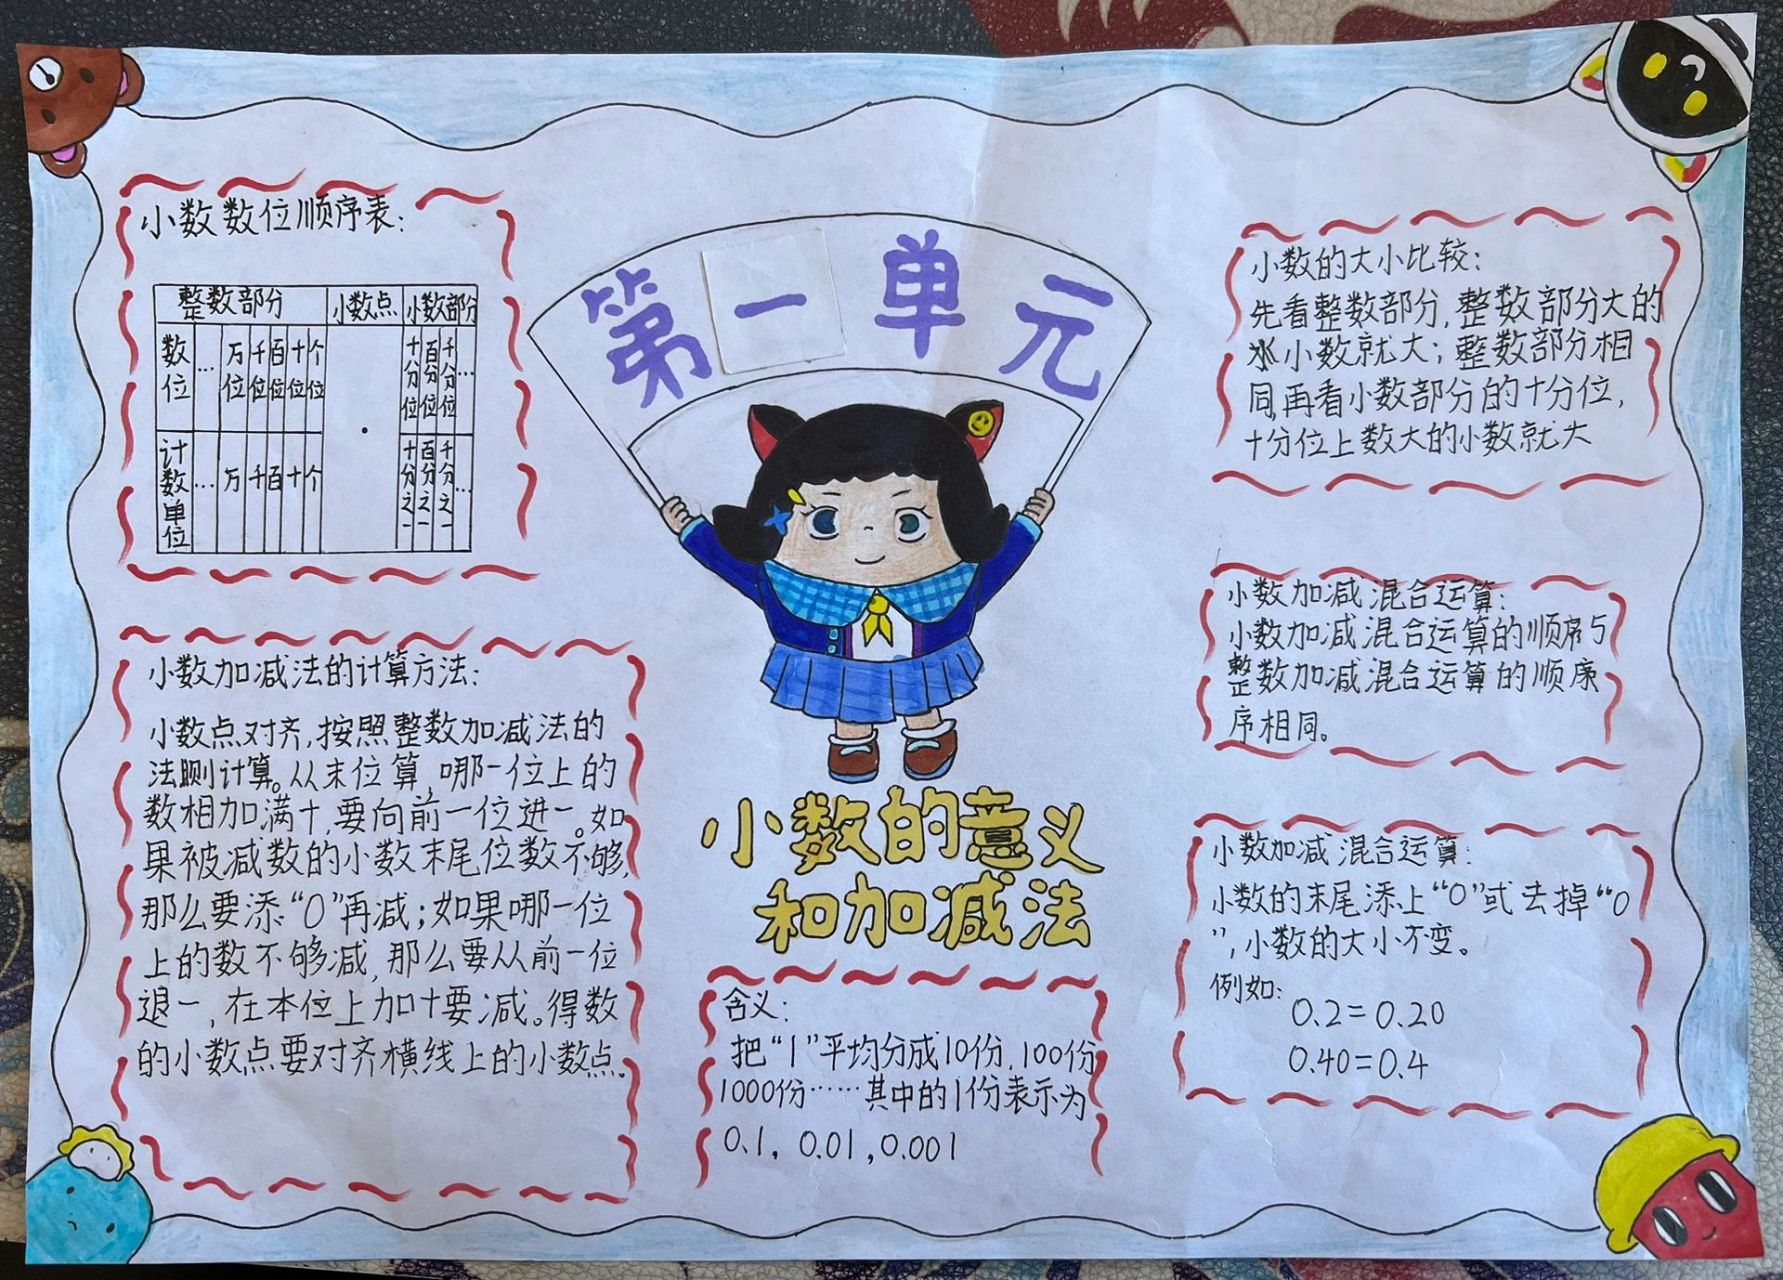 第一单元
小数的意义
和加减法
小数数位顺序表:
整数部分 小数点 小数部分
数位 … 万位 千位 百位 十位 个位 · 十分位 百分位 千分位 …
计数单位 … 万 千 百 十 个 十分之一 百分之一 千分之一 …
小数加减法的计算方法:
小数点对齐,按照整数加减法的
法则计算。从末位算,哪一位上的
数相加满十,要向前一位进一。如
果被减数的小数末尾位数不够,
那么要添“0”再减;如果哪一位
上的数不够减,那么要从前一位
退一,在本位上加十要减。得数
的小数点要对齐横线上的小数点。
含义:
把“1”平均分成10份,100份
1000份……其中的1份表示为
0.1, 0.01,0.001
小数的大小比较:
先看整数部分,整数部分大的
小数就大;整数部分相
同,再看小数部分的十分位,
十分位上数大的小数就大
小数加减混合运算:
小数加减混合运算的顺序与
整数加减混合运算的顺
序相同。
小数加减混合运算:
小数的末尾添上“0”或去掉“0
”,小数的大小不变。
例如:
0.2=0.20
0.40=0.4